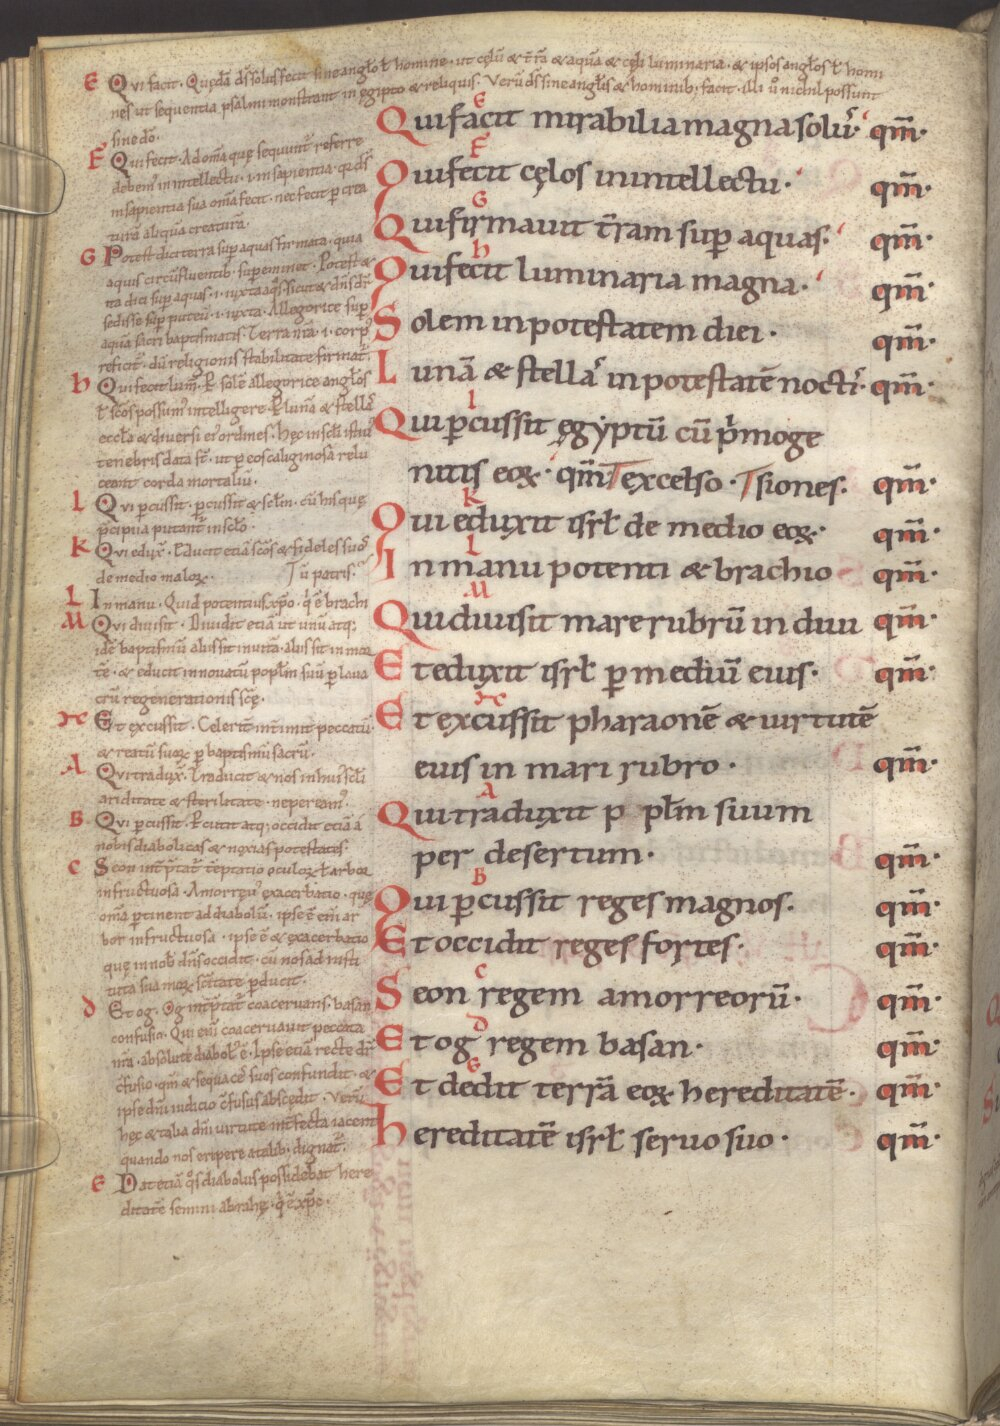 E Qui facit. Quędā dn̄s solus fecit sine angl̄o ł homine. ut cęlū & t̄rā & aquā & cęli luminaria. & ipsos angl̄os ł homi
nes ut sequentia psalmi monstrant in egipto & reliquis. Verū dn̄s sine angl̄is & hominib; facit. illi ů nichil possunt
sine dō.
F Qui fecit. Ad om̄a quę sequunt̄ referre
debem᾽ in intellectu. i. in sapientia. quia dn̄s
in sapientia sua om̄a fecit. nec fecit p crea
turā aliquā creaturā.
G Potest dici terra sup aquas firmata. quia
aquis circūfluentib; supeminet. Potest &
ita dici sup aquas. i. iuxta aq̄s. sicut & dn̄s dr̄
sedisse sup puteū. i. iuxta. Allegorice sup
aqua sacri baptismatis. Terra nr̄a. i. corp᾽
reficit. dū religionis stabilitate firmat̄.
h Qui fecit lum̄. P solē allegorice angl̄os
ł sc̄os possum᾽ intelligere. P lunā & stellas
eccl̄a & diversi ei᾽ ordines. Hęc in scl̄i isti᾽
tenebris data st̄. ut p eos caliginosa relu
ceant corda mortaliū.
I Qui percussit. percussit & scl̄m. cū his quę
p̄cipua putant̄ in scl̄o.
K Qui edux̄. Educit etiā sc̄os & fideles suos
de medio maloꝝ. Tū patris.
L In manu. Quid potentius xp̄o. q̇ ē brachi
M Qui divisit. Dividit etiā ut unū atq;
idē baptismū alii sit in vita. alii sit in mor
tē. & educit innovatū popl̄m suū p lava
crū regenerationis scę̄.
N Et excussit. Celerit̄ int̄imit peccatū
& reatū suoꝝ p baptismū sacrū.
A Qui tradux̄. Traducit & nos in hui᾽ scl̄i
ariditate & sterilitate. ne peream᾽.
B Qui percussit. Pcutit atq; occidit etiā a
nobis diabolicas & noxias potestates.
C Seon int̄ptat̄ tēptatio oculoꝝ ł arbor
infructuosa. Amorręus exacerbatio. quę
om̄a ptinent ad diabolū. ipse ē eni ar
bor infructuosa. ipse ē & exacerbatio
quę in nob̄ dn̄s occidit. cū nos ad insti
tuta sua in oꝝ sc̄itate pducit.
d Et og. Og int̄ptat̄ coacervans. basan
confusio. Qui eni coacervavit peccata
nr̄a. absolute diabol᾽ ē. Ipse etiā recte dr̄
c̄fusio. qm̄ & sequaces suos confundit. &
ipse dn̄i iudicio c̄fusus abscedit. Verū
hęc & talia dn̄i virtute int̄fecta iacent
quando nos eripere a talib; dignat̄.
E Dat etiā q̊s diabolus possidebat here
ditatē semini abrahę. q̇ ē xp̄e.
E
Qui facit mirabilia magna solus. qm̄.
F
Qui fecit cęlos in intellectu. qm̄.
G
Qui firmavit t̄ram sup aquas. qm̄.
h
Qui fecit luminaria magna. qm̄.
Solem in potestatem diei. qm̄.
Lunā & stellas in potestatē noctis. qm̄.
I
Qui pcussit ęgẏptū cū p̄moge
nitis eoꝝ. qm̄ T excelso. Tsiones. qm̄.
K
Qui eduxit isrł de medio eoꝝ. qm̄.
L
In manu potenti & brachio qm̄.
M
Qui divisit mare rubrū in divi qm̄.
Et eduxit isrł p mediū eius. qm̄.
N
Et excussit pharaonē & virtutē
eius in mari rubro. qm̄.
A
Qui traduxit p pl̄m suum
per desertum. qm̄.
B
Qui pcussit reges magnos. qm̄.
Et occidit reges fortes. qm̄.
C
Seon regem amorreorū. qm̄.
d
Et og regem basan. qm̄.
E
Et dedit terrā eoꝝ hereditatē. qm̄.
Hereditatē isrł servo suo. qm̄.